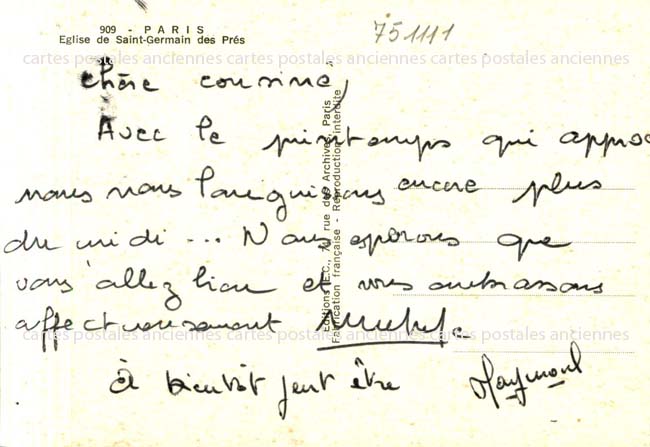 909 - PARIS
Eglise de Saint-Germain des Prés
751111
cartes postales anciennes cartes postales anciennes cartes postales anciennes
chère cousine,
Avec le printemps qui approc
nous nous languissons encore plus
cartes postales anciennes cartes postales anciennes cartes postales anciennes
du midi ... Nous esperons que
vous allez bien et vous embrassons
affectueusement
cartes postales anciennes cartes postales anciennes cartes postales anciennes
à bientôt peut être Raymond
Editions I.E.C., rue des Archives, Paris
Fabrication française - Reproduction interdite